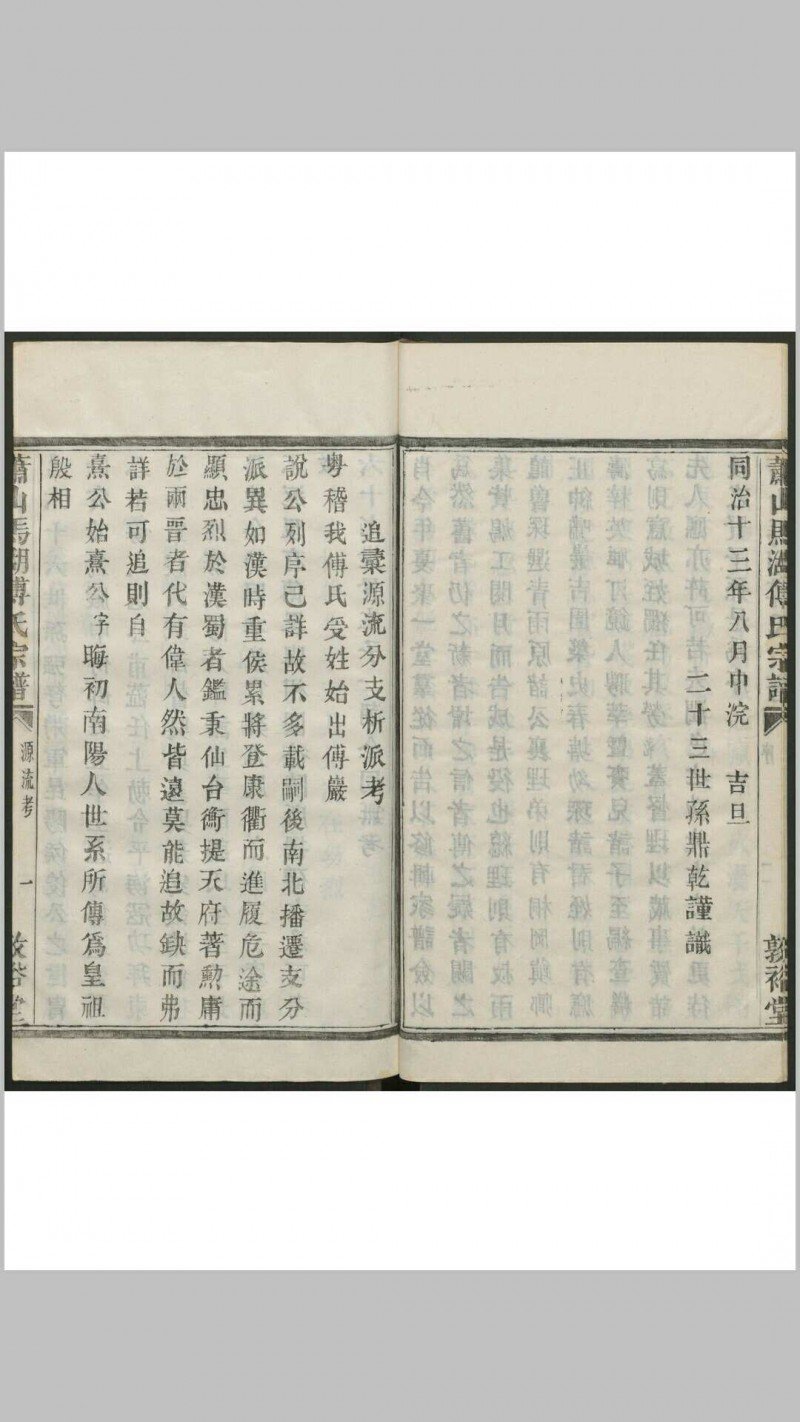 蕭山馬湖傅氏宗譜
敦裕堂
同治十三年八月中浣 吉旦
二十三世孫鼎乾謹識
追彚源流分支析派考
粤稽我傅氏受姓始出傅巖
說公列序已詳故不多載嗣後南北播遷支分
派異如漢時重侯累將登康衢而進履危途而
顯忠烈於漢蜀者鑑秉仙台衛提天府著勲庸
於兩晋者代有偉人然皆遠莫能追故缺而弗
詳若可追則自
熹公始熹公字晦初南陽人世系所傳爲皇祖
殷相
蕭山馬湖傅氏宗譜
源流考
一
敦裕堂